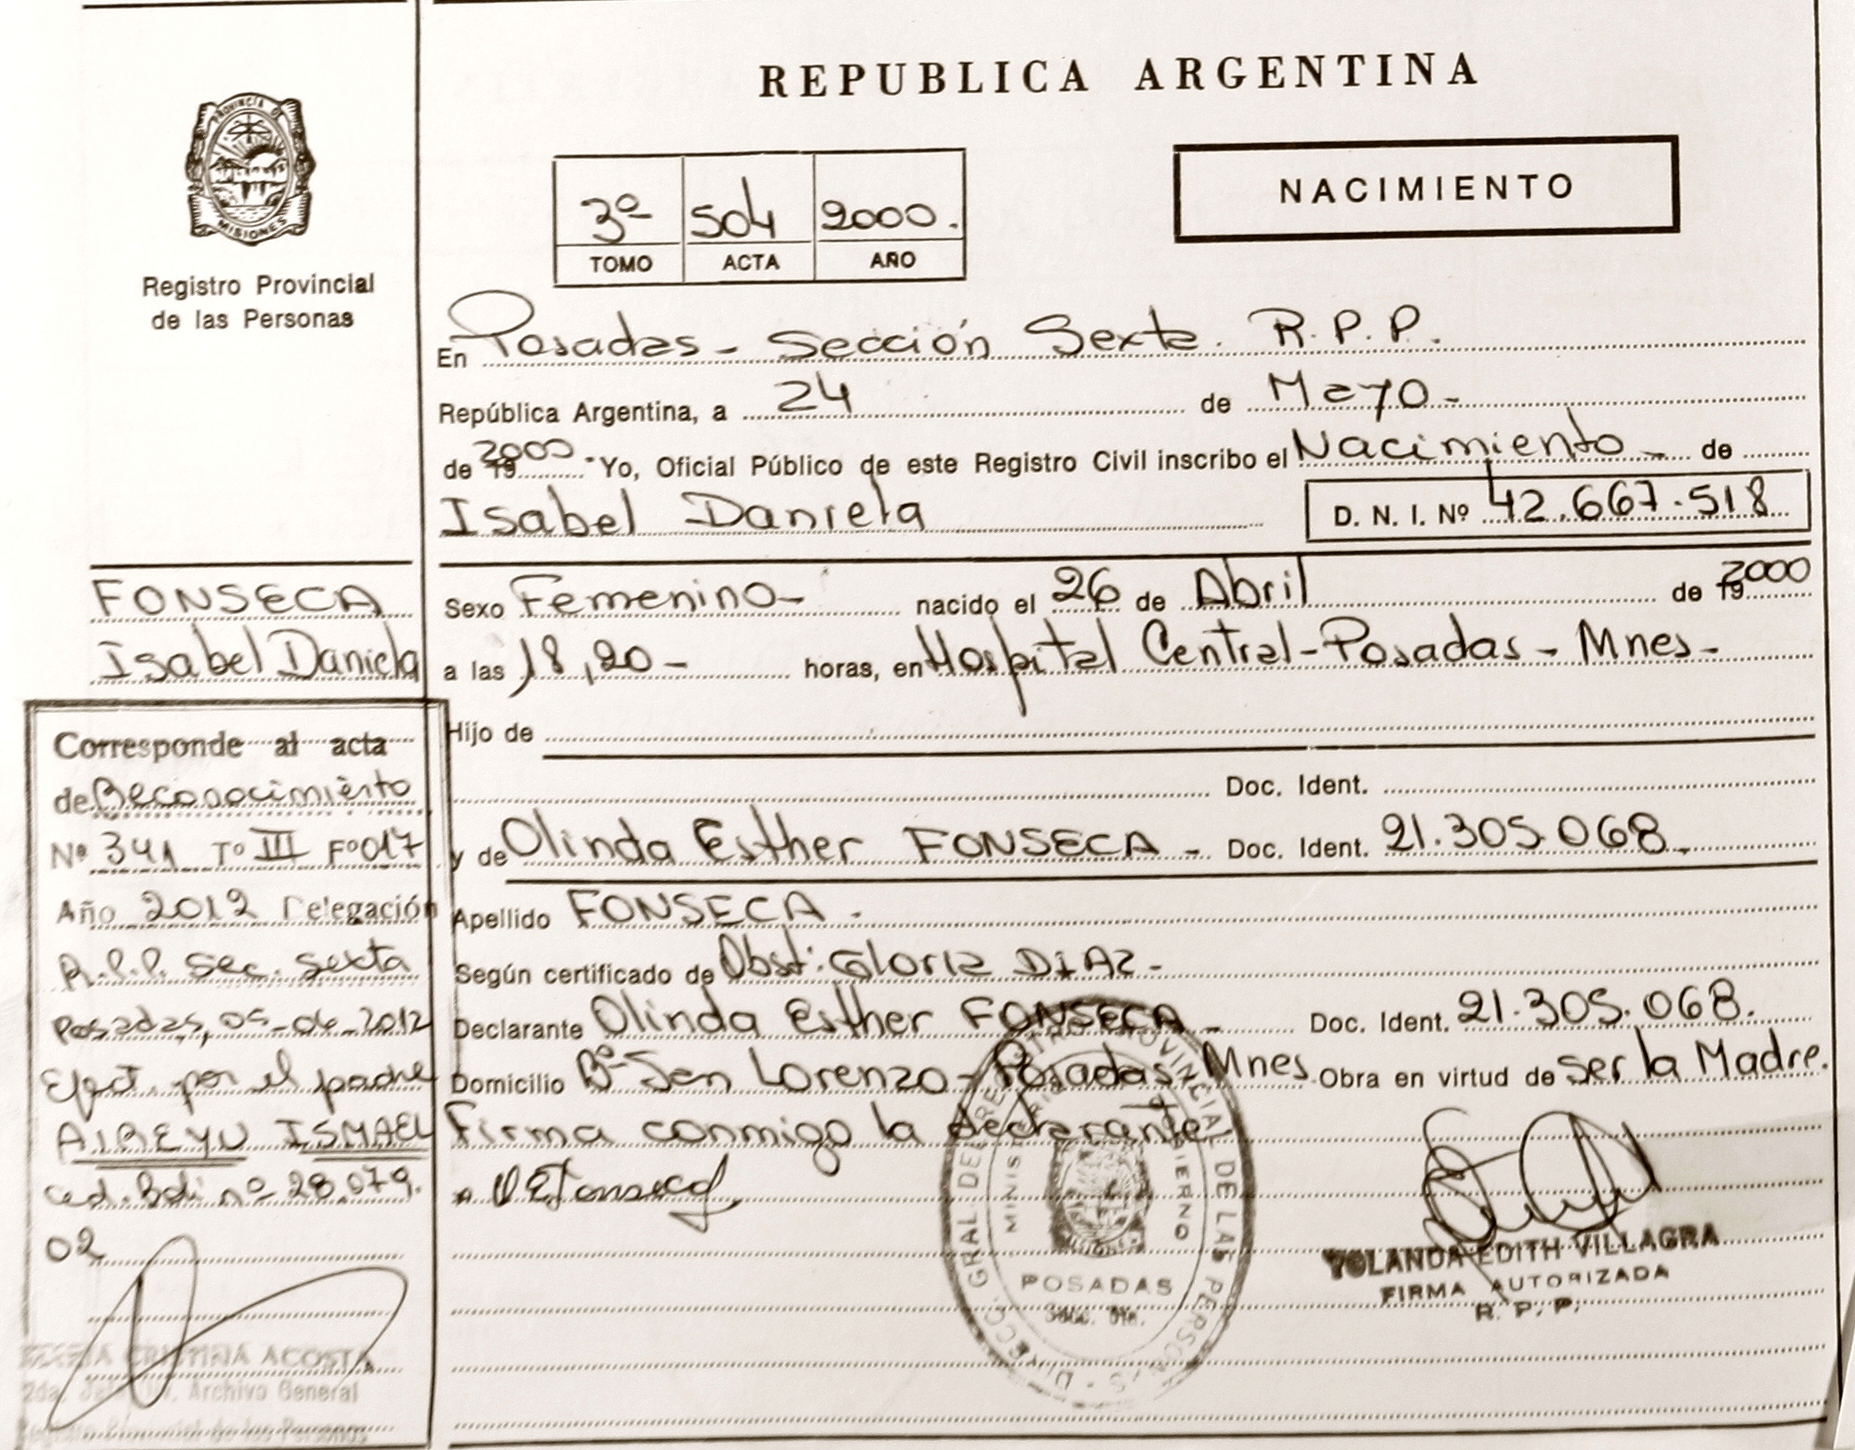 PROVINCIA D
MISIONES
Registro Provincial
de las Personas
FONSECA
Isabel Daniela
Corresponde al acta
de Reconocimiento
Nº 341 Tº III Fº 017
Año 2012 Delegación
R.P.P. Sec. Sexta
Posadas, 05-06-2012
Efect. por el padre
AIREYU ISMAEL
Ced. Bdi nº 28.079.
02
MARIA CRISTINA ACOSTA
2da. Archivo General
Registro Provincial de las Personas
REPUBLICA ARGENTINA
3º 504 2000.
TOMO ACTA AÑO
NACIMIENTO
En Posadas - Sección Sexta. R.P.P.
República Argentina, a 24 de Mayo -
de 19 2000 Yo, Oficial Público de este Registro Civil inscribo el Nacimiento - de
Isabel Daniela D. N. I. Nº 42.667.518
Sexo Femenino - nacido el 26 de Abril de 19 2000
a las 18,20 - horas, en Hospital Central - Posadas - Mnes -
Hijo de
Doc. Ident.
y de Olinda Esther FONSECA - Doc. Ident. 21.305.068 -
Apellido FONSECA .
Según certificado de Obst: Gloria DIAZ -
Declarante Olinda Esther FONSECA - Doc. Ident. 21.305.068.
Domicilio Bº San Lorenzo - Posadas - Mnes Obra en virtud de ser la Madre.
Firma conmigo la declarante
OEFonseca
DIRECC. GRAL. DEL REGISTRO PROVINCIAL DE LAS PERSONAS
MINISTERIO GOBIERNO
POSADAS
Secc. 6ta.
YOLANDA EDITH VILLAGRA
FIRMA AUTORIZADA
R. P. P.